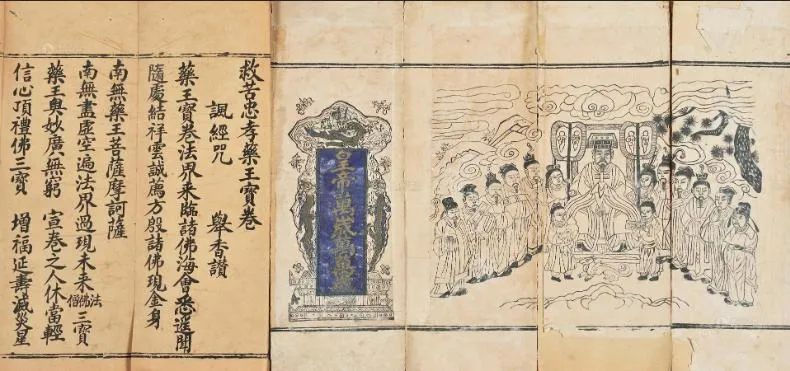 皇帝萬歲萬萬歲
救苦忠孝藥王寶卷
諷經咒 舉香讚
藥王寶卷法界来臨諸佛海會悉遥聞
隨處結祥雲誠意方殷諸佛現金身
南無藥王菩薩摩訶薩
南無盡虛空遍法界過現未来佛法僧三寶
藥王奥妙廣無窮 宣卷之人休當輕
信心頂禮佛三寶 增福延壽滅災星